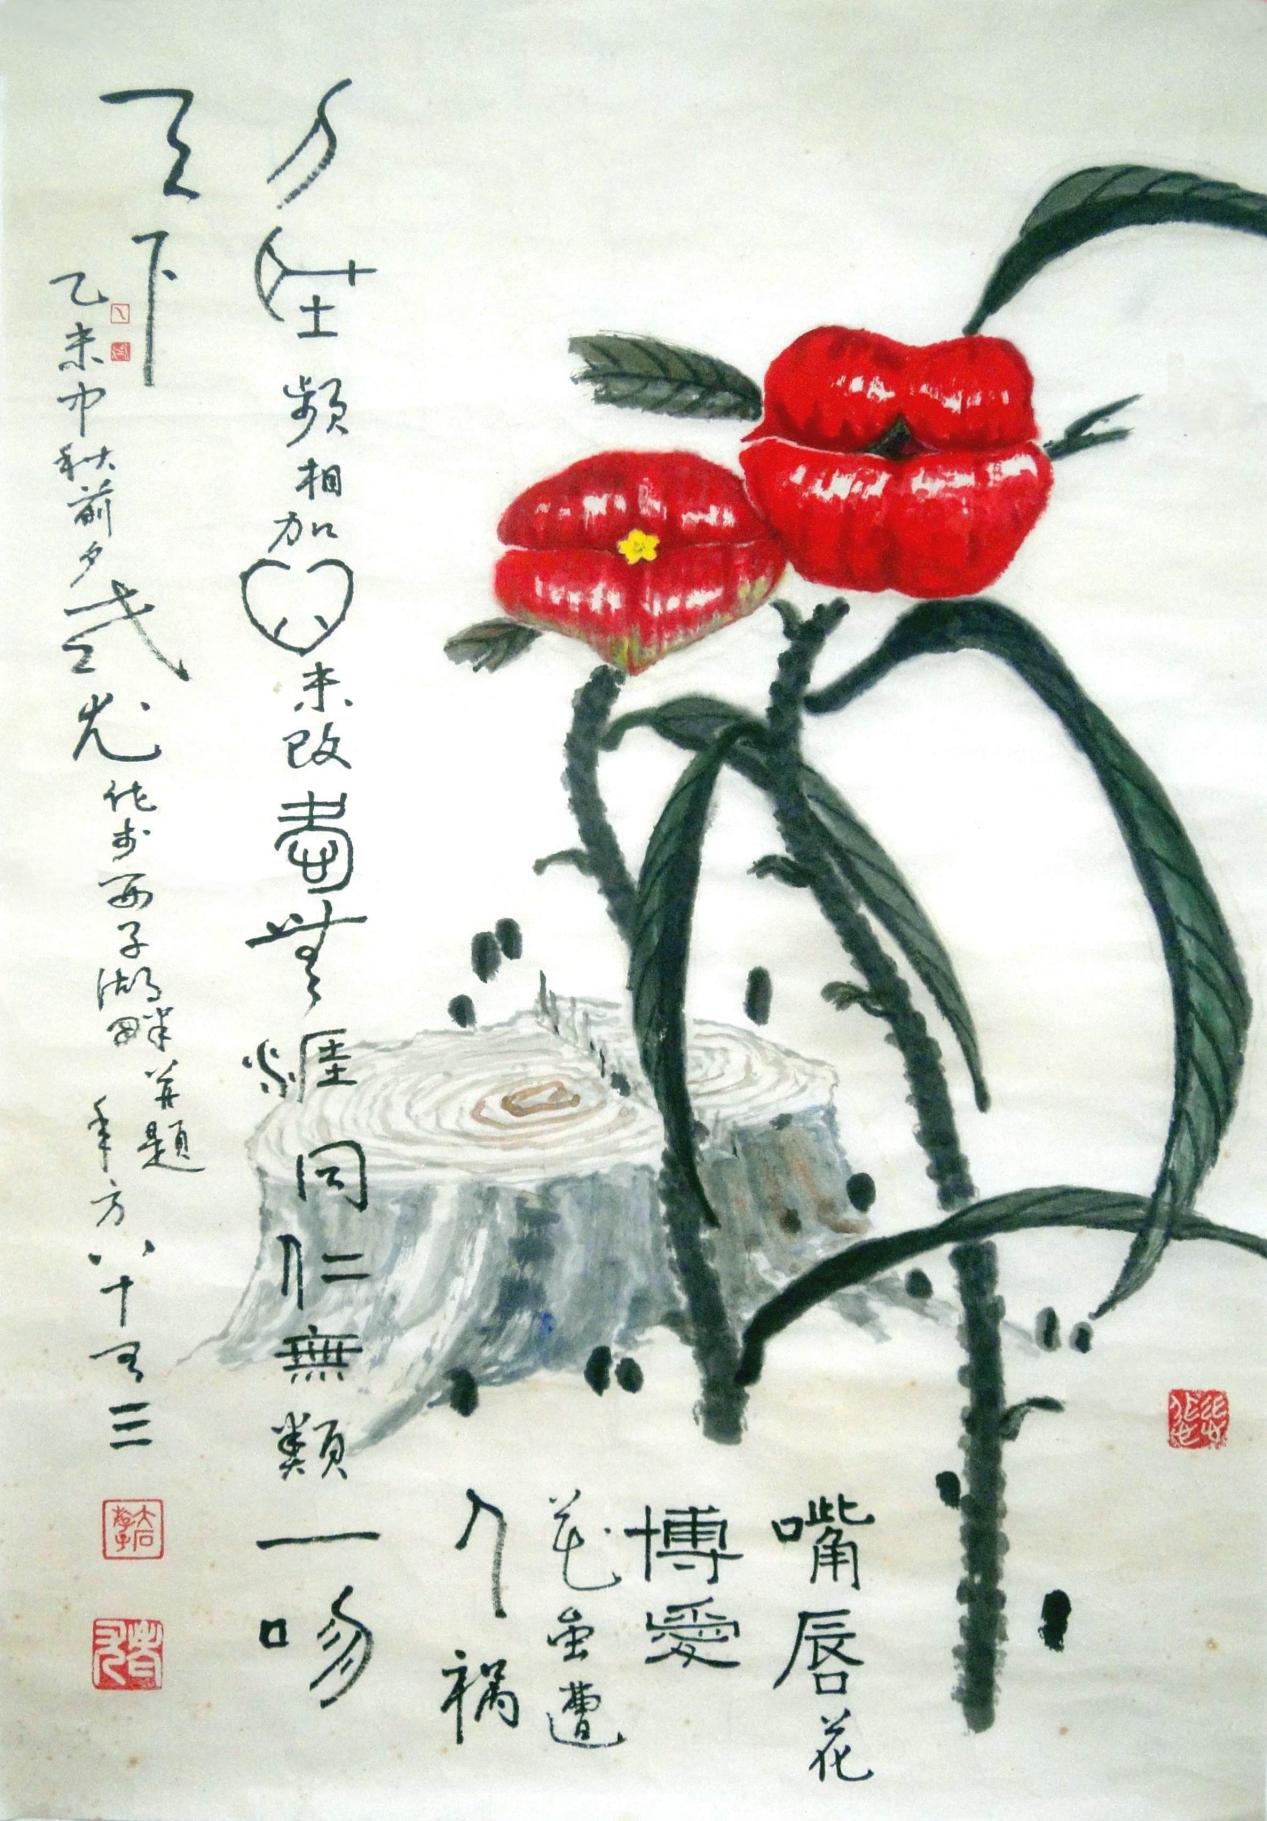 嘴唇花
博愛
花虽遭
人禍
刀 頻相加 未改 無涯同仁無類一吻
天下
乙未中秋前夕 尤作於西子湖畔并題
年方八十有三